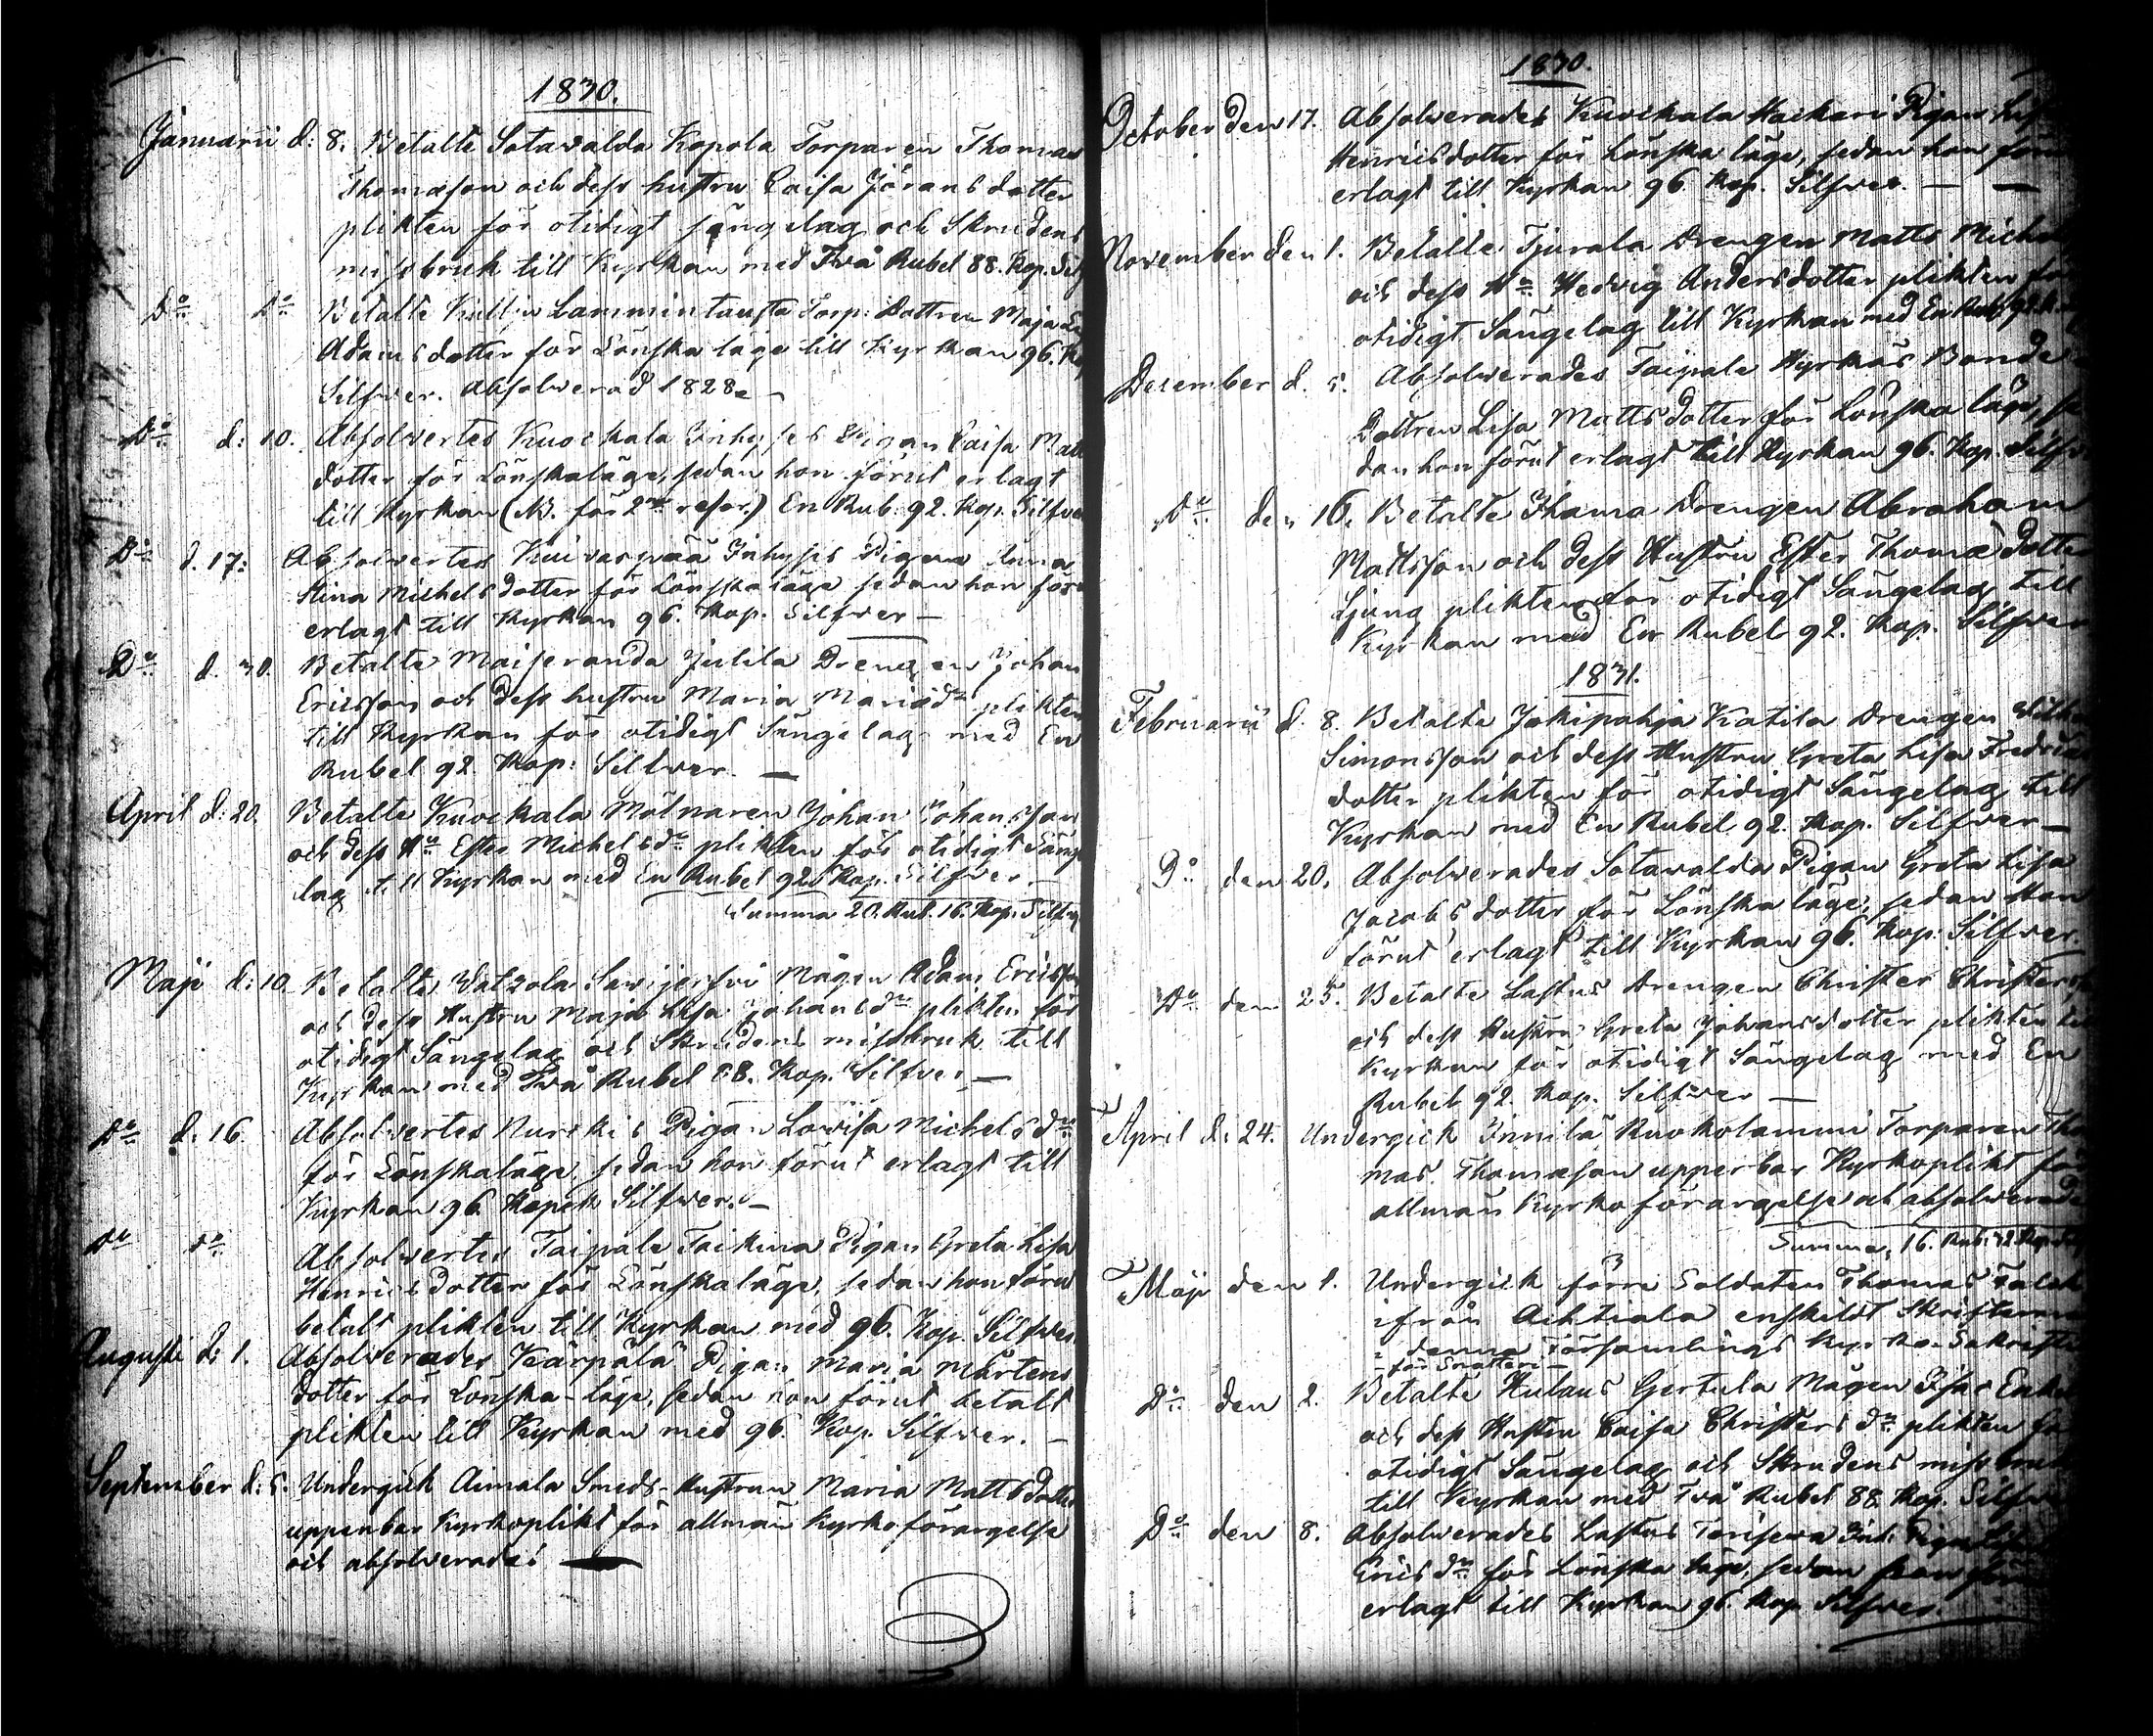 1830.
Januarii d: 8. Betalte Satavalda Kopola Torparen Thomas
Thomasson och dess hustru Caisa Jöransdotter
plikten för otidigt sängelag och Skrudens
missbruk till Kyrkan med Två Rubel 88. Kop. Silf
Do Do Betalte Lammintausta Torp: Dottren Maja
Adamsdotter för Lönskaläge till Kyrkan 96. Kop
Silfver. Absolverad 1828.
Do d: 10. Absolvertes Kuockala Inhyses Pigan Caisa Matts
dotter för Lönskaläge, sedan hon förut erlagt
till Kyrkan (NB. för 2dra resor.) En Rub. 92. Kop. Silfver
Do d. 17: Absolvertes Kuivaspää Inhyses Pigan Anna
Stina Michelsdotter för Lönskaläge sedan hon för
erlagt till Kyrkan 96. Kop. Silfver —
Do d. 30. Betalte Maiseranda Jutila Drengen Johan
Ericsson och dess hustru Maria Mariædr plikten
till Kyrkan för otidigt Sängelag med En
Rubel 92. Kop: Silfver. —
April d: 20. Betalte Kuockala Mölnaren Johan Johansson
och dess Hu Ester Michelsdr plikten för otidigt Sänge
lag till Kyrkan med En Rubel 92 Kop. Silfver —
Summa 20. Rub. 16. Kop. Silfv
Maji d: 10. Betalte Savijerfvi Mågen Adam Ericsson
och dess Hustru Maja Lisa Johansdr plikten för
otidigt Sängelag och Skrudens missbruk till
Kyrkan med Två Rubel 88. Kop. Silfver —
Do d. 16. Absolvertes Nurckis Pigan Lovisa Michelsdr
för Lönskaläge, sedan hon förut erlagt till
Kyrkan 96 Kopek Silfver. —
Do Do Absolvertes Taipale Taikina Pigan Greta Lisa
Henricsdotter för Lönskaläge, sedan hon förut
betalt plikten till Kyrkan med 96. Kop. Silfver
Augusti d: 1. Absolverades Kärpälä Pigan Maria Mårtens
dotter för Lönska-läge, sedan hon förut betalt
plikten till Kyrkan med 96. Kop. Silfver. —
September d: 5. Undergick Aimala Smeds-Hustrun Maria Mattsdotter
uppenbar Kyrkoplikt för allmän Kyrkoförargelse
och absolverades —
1830.
October den 17. Absolverades Kuockala Haikari Pigan
Henricsdotter för Lönska läge, sedan hon för
erlagt till Kyrkan 96 Kop. Silfver. — —
November den 1. Betalte Tjurala Drengen Matts Michels
och dess Hu Hedvig Andersdotter plikten för
otidigt Sängelag till Kyrkan med En Rub. 92. K
December d. 5. Absolverades Taipale Hyrkäs Bonde
Dottren Lisa Mattsdotter för Lönska läge, se
dan hon förut erlagt till Kyrkan 96. Kop. Silfv
Do den 16. Betalte Ihama Drengen Abraham
Mattsson och dess Hustru Ester Thomædotter
Ljung plikten för otidigt Sängelag till
Kyrkan med En Rubel 92. Kop. Silfver
1831.
Februarii d. 8. Betalte Jokipohja Katila Drengen
Simonsson och dess Hustru Greta Lisa Fredrics
dotter plikten för otidigt Sängelag till
Kyrkan med En Rubel 92. Kop. Silfver —
Do den 20. Absolverades Satavalda Pigan Greta Lisa
Jacobsdotter för Lönska läge, sedan Hon
förut erlagt till Kyrkan 96. Kop: Silfver.
Do den 25. Betalte Lastus Drengen Christer Christers
och dess Hustru Greta Johansdotter plikten till
Kyrkan för otidigt Sängelag med En
Rubel 92. Kop. Silfver —
April d: 24. Undergick Innilä Ruokolammi Torparen Tho
mas Thomasson uppenbar Kyrkoplikt för
allmän Kyrko förargelse och absolverades
Summa, 16. Rub. 32 Kop.
Maji den 1. Undergick förre Soldaten Thomas Falck
ifrån Achtiala enskildt Skriftermål
i denna Församlings Kyrko-Sakristi
— för Snatteri —
Do den 2. Betalte Hulaus Gertula Mågen Isac
och dess Hustru Caisa Christersdr plikten för
otidigt Sängelag och Skrudens missbruk
till Kyrkan med Två Rubel 88. Kop. Silfver
Do den 8. Absolverades Lastus Torisewa Inh: Pigan
Ericsdr för Lönska läge, sedan hon förut
erlagt till Kyrkan 96 Kop Silfver.